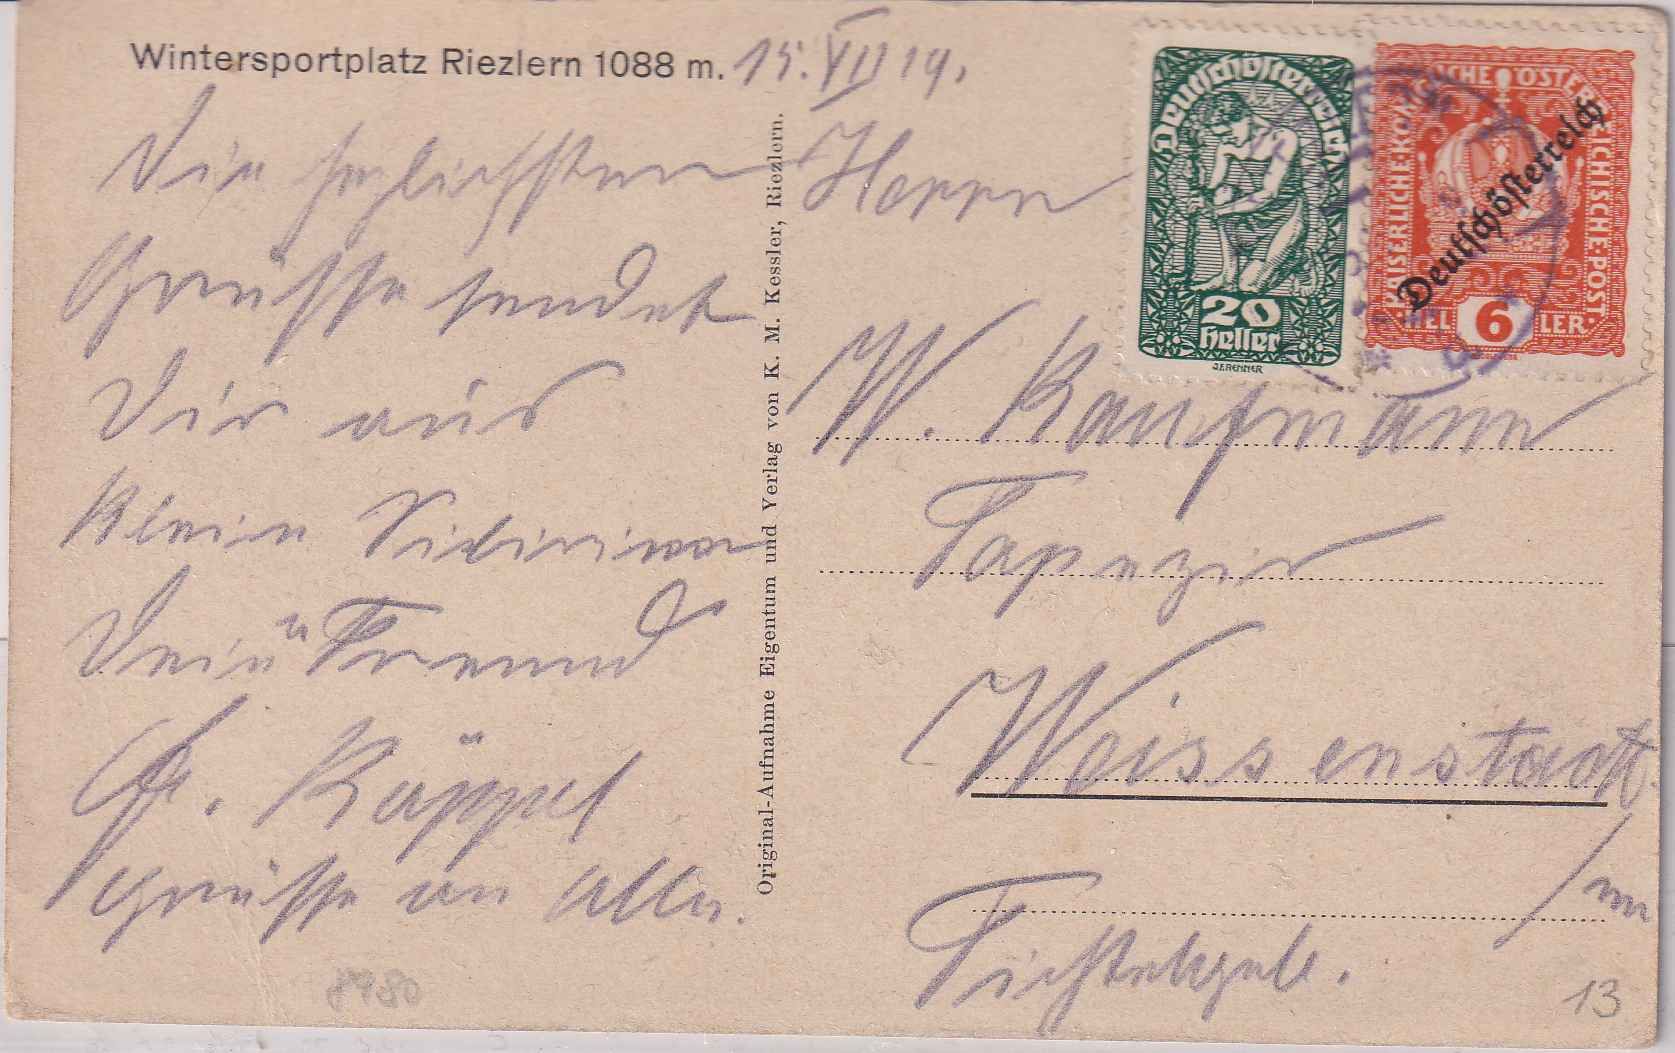 Wintersportplatz Riezlern 1088 m.
15. VII 19.
Die herzlichsten
Grüsse sendet
Dir aus
Klein
Dein Freund
Käppel
Grüsse an Alle.
Original-Aufnahme Eigentum und Verlag von K. M. Kessler, Riezlern.
Herrn
W. Kaufmann
Tapezier
Weissenstadt
im
Fichtelgeb.
Deutschösterreich
20
Heller
J.F.RENNER
KAISERLICHE KÖNIGLICHE ÖSTERREICHISCHE POST.
Deutschösterreich
HELLER
6
8480
13